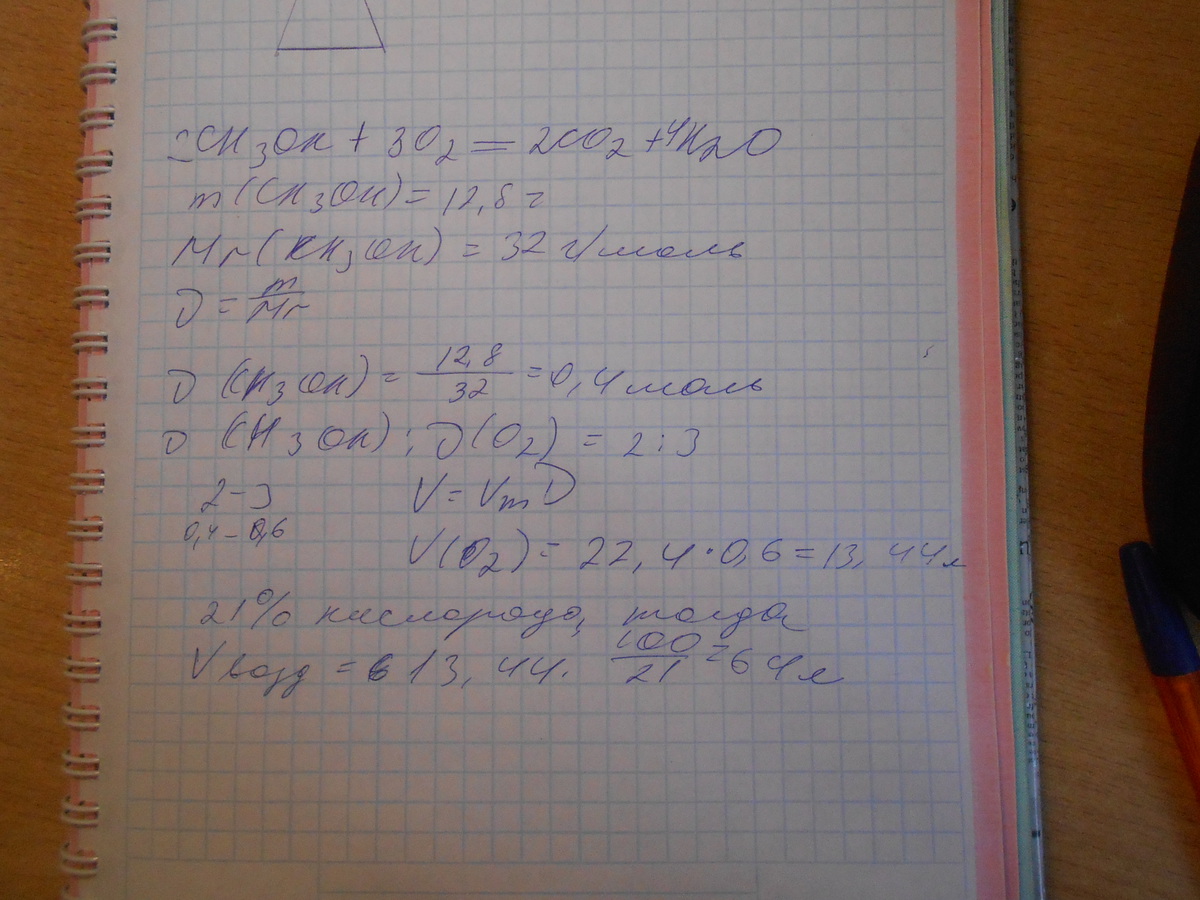 2CH₃OH + 3O₂ = 2CO₂ + 4H₂O
m(CH₃OH) = 12,8 г
Mr(CH₃OH) = 32 г/моль
ν = m/Mr
ν(CH₃OH) = 12,8/32 = 0,4 моль
ν(CH₃OH) : ν(O₂) = 2 : 3
2 - 3 V = Vm ν
0,4 - 0,6
V(O₂) = 22,4 · 0,6 = 13,44 л
21% кислорода, тогда
Vвозд = 13,44 · 100/21 = 64 л